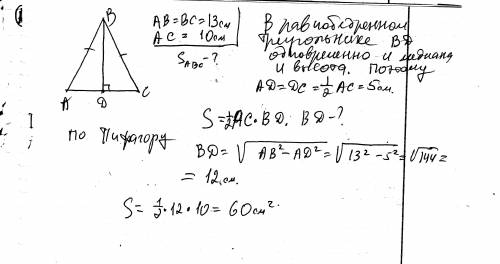 1
B
A
D
C
AB=BC=13см
AC=10см
S_ABC-?
В равнобедренном
треугольнике BD
одновременно и медиана
и высота. Поэтому
AD=DC=½AC=5см.
S=½AC·BD. BD-?
по Пифагору
BD=√AB²-AD²=√13²-5²=√144=
=12см.
S=½·12·10=60см².